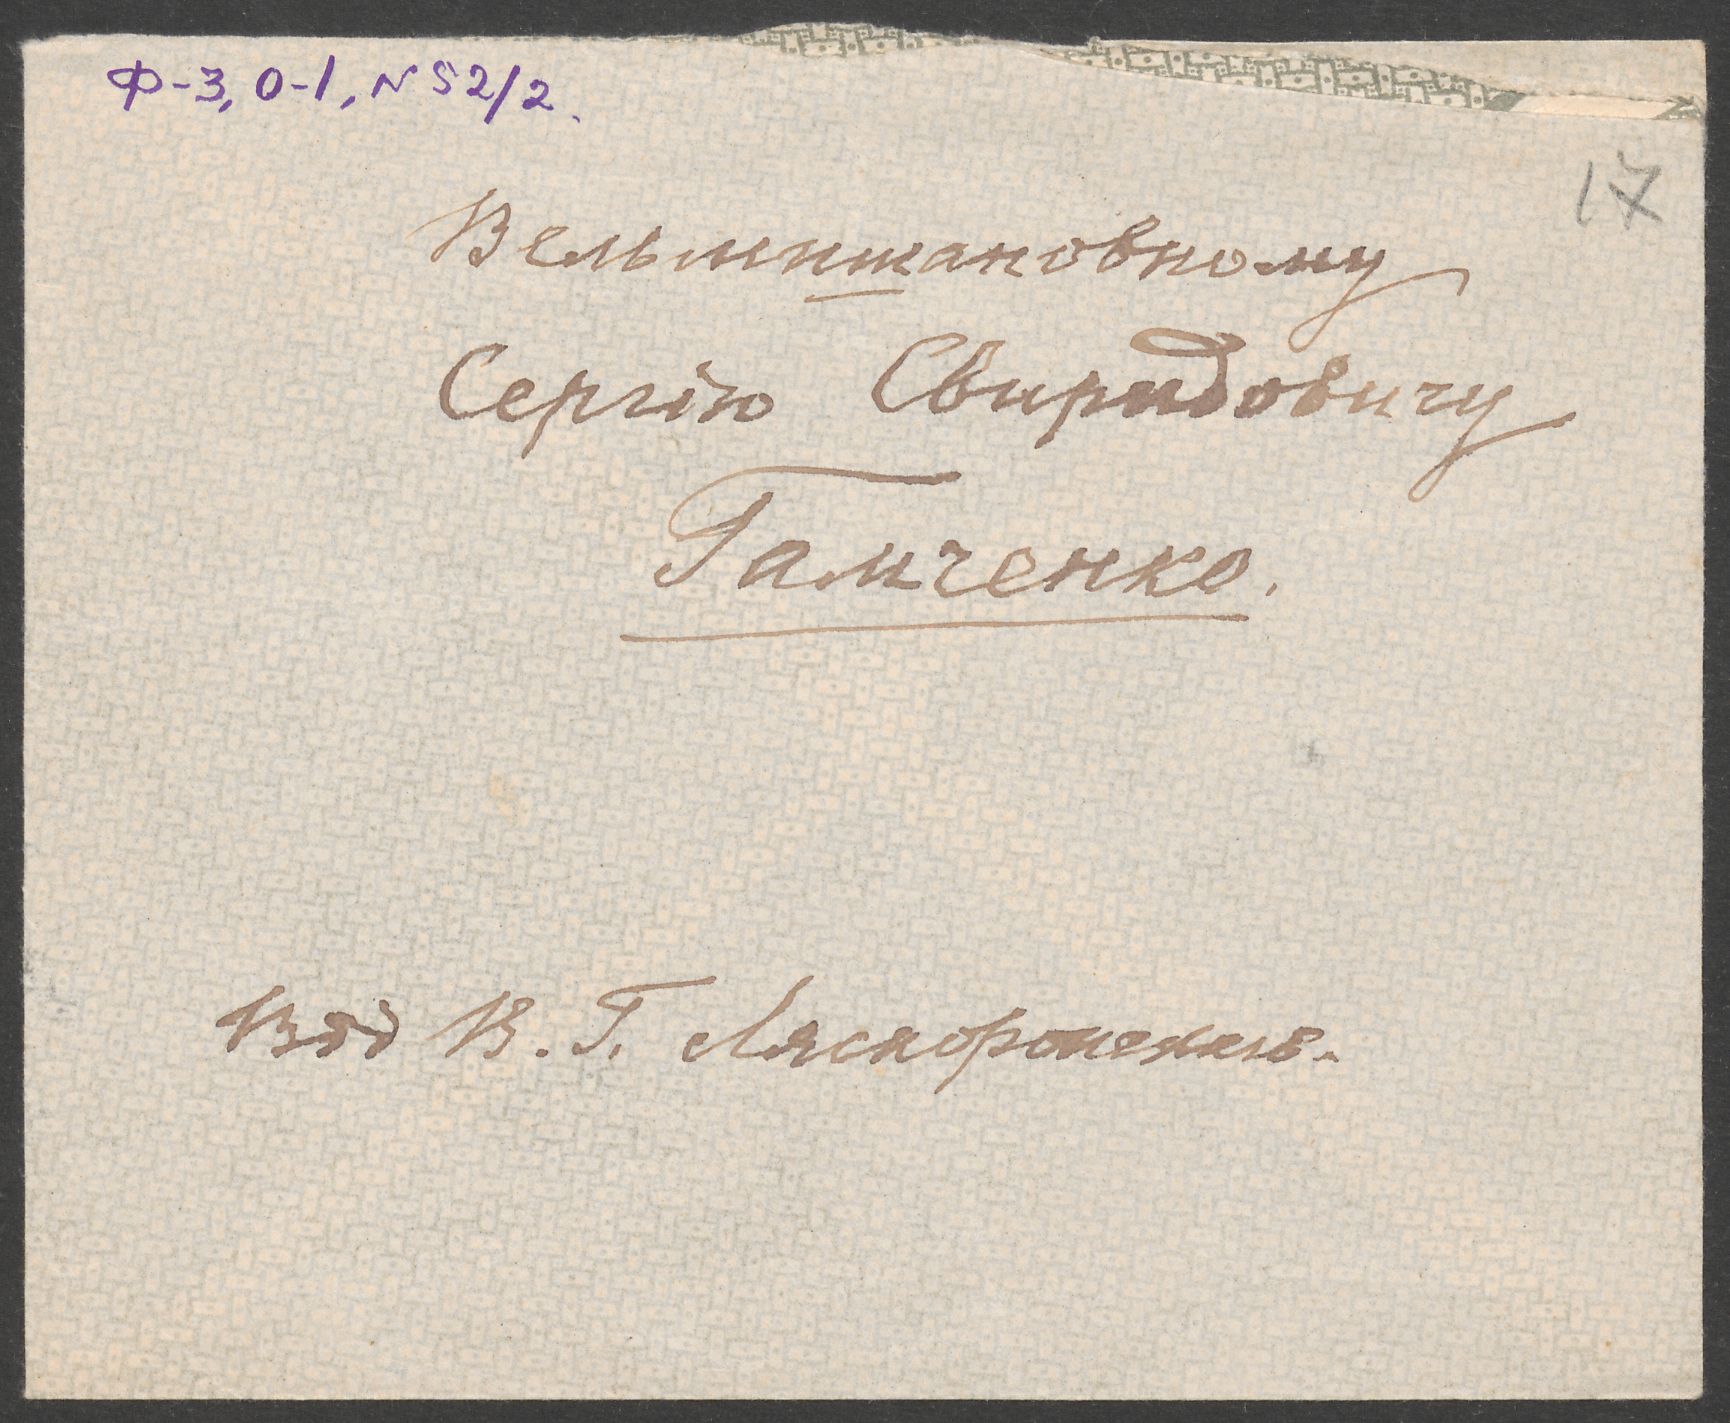 Ф-3, О-1, N 52/2.
17
Вельмишановному
Сергію Свиридовичу
Гамченко.
Від В. Г. Ляскоронського.